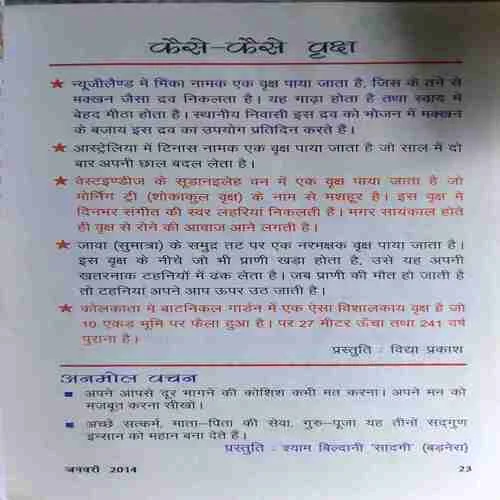 कैसे-कैसे वृक्ष
★ न्यूजीलैण्ड में मिंका नामक एक वृक्ष पाया जाता है, जिस के तने से
मक्खन जैसा द्रव निकलता है। यह गाढ़ा होता है तथा स्वाद में
बेहद मीठा होता है। स्थानीय निवासी इस द्रव को भोजन में मक्खन
के बजाय इस द्रव का उपयोग प्रतिदिन करते हैं।
★ आस्ट्रेलिया में टिनास नामक एक वृक्ष पाया जाता है जो साल में दो
बार अपनी छाल बदल लेता है।
★ वेस्टइण्डीज के सूडानइलेह वन में एक वृक्ष पाया जाता है जो
मोर्निंग ट्री (शोकाकुल वृक्ष) के नाम से मशहूर है। इस वृक्ष में
दिनभर संगीत की स्वर लहरियां निकलती हैं। मगर सायंकाल होते
ही वृक्ष से रोने की आवाज आने लगती है।
★ जावा (सुमात्रा) के समुद्र तट पर एक नरभक्षक वृक्ष पाया जाता है।
इस वृक्ष के नीचे जो भी प्राणी खड़ा होता है, उसे यह अपनी
खतरनाक टहनियों में ढंक लेता है। जब प्राणी की मौत हो जाती है
तो टहनियां अपने आप ऊपर उठ जाती हैं।
★ कोलकाता में बाटनिकल गार्डन में एक ऐसा विशालकाय वृक्ष है जो
10 एकड़ भूमि पर फैला हुआ है। पर 27 मीटर ऊँचा तथा 241 वर्ष
पुराना है।
प्रस्तुति : विद्या प्रकाश
अनमोल वचन
■ अपने आपसे दूर भागने की कोशिश कभी मत करना। अपने मन को
मजबूत करना सीखो।
■ अच्छे सत्कर्म, माता-पिता की सेवा, गुरु-पूजा यह तीनों सद्गुण
इन्सान को महान बना देते हैं।
प्रस्तुति : श्याम बिल्दानी 'सादगी' (बड़नेरा)
जनवरी 2014
23